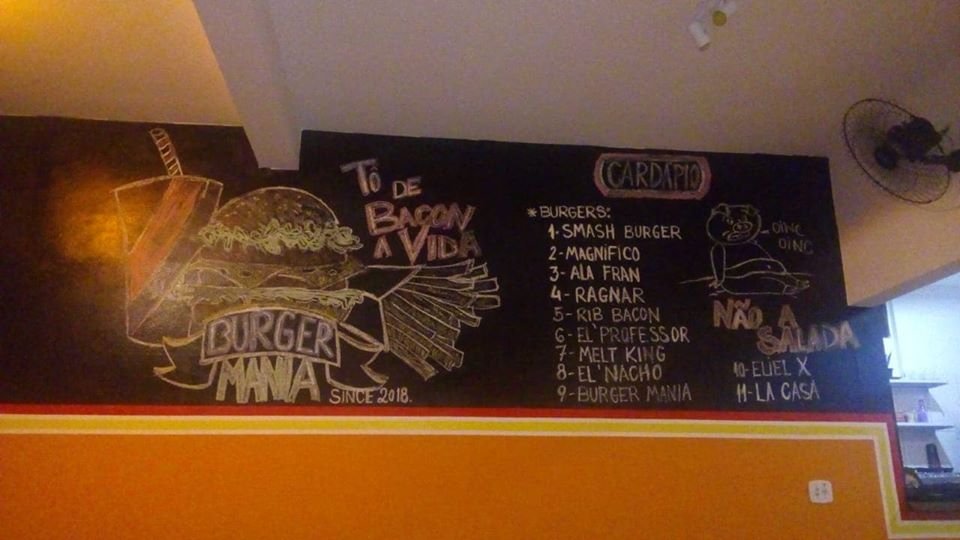 TÔ DE
BACON
A VIDA
BURGER
MANIA
SINCE 2018.
CARDAPIO
* BURGERS:
1- SMASH BURGER
2- MAGNÍFICO
3- ALA FRAN
4- RAGNAR
5- RIB BACON
6- EL'PROFESSOR
7- MELT KING
8- EL'NACHO
9- BURGER MANIA
OINC
OINC
NÃO A
SALADA
10- ELIEL X
11- LA CASA